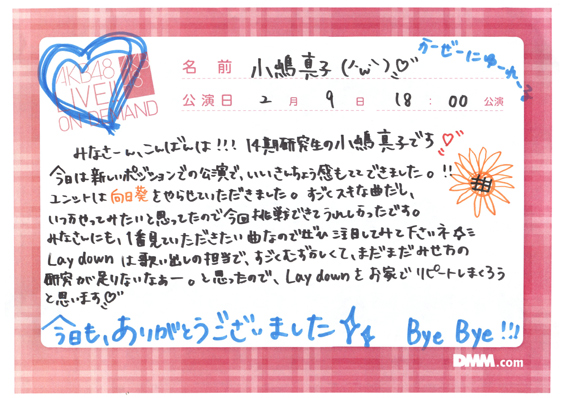 AKB48
LIVE!!
ON DEMAND
名前 小嶋真子(^ω^)♡
かーぜーにゆーれーる
公演日 2月9日 18:00公演
みなさーん、こんばんは!!! 14期研究生の小嶋真子です♡
今日は新しいポジションでの公演で、いいきんちょう感もててできました。!!
ユニットは向日葵をやらせていただきました。すごくスキな曲だし、
いつかやってみたいと思ってたので今回挑戦できてうれしかったです。
みなさんにも、1番見ていただきたい曲なのでぜひ注目してみて下さいネ☆ミ
Lay downは歌い出しの担当で、すごくむずかしくて、まだまだみせ方の
研究が足りないなぁー。と思ったので、Lay downをお家でリピートしまくろう
と思います♡
今日も、ありがとうございました☆ Bye Bye!!!
DMM.com